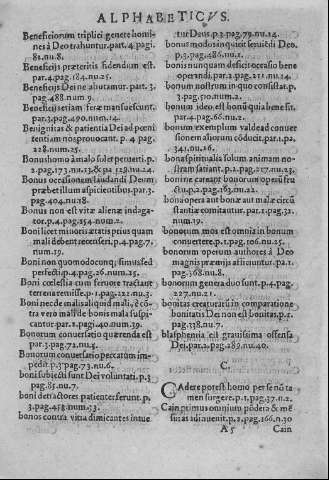 ALPHABETICVS.
Beneficiorum triplici genere homines
à Deo trahuntur. part. 4. pagi.
81. nu. 8.
Beneficijs præteritis fidendum est.
par. 4. pag. 184. nu. 25.
Beneficijs Dei ne abutamur. part. 3.
pag. 488. num. 9.
Beneficijs etiam feræ mansuescunt.
par. 3. pag. 490. num. 14.
Benignitas & patientia Dei ad pœnitentiam
nos prouocant. p. 4. pag.
228. num. 25.
Bonus homo à malo solet peruerti. p.
2. pag. 173. nu. 13. & pa. 129. nu. 24.
Bonus occasionem laudandi Deum
præbet illum aspicientibus. par. 3.
pag. 404. nu. 18.
Bonus non est vitæ alienæ indagator.
p. 4. pag. 254. num. 2.
Boni licet minoris ætatis prius quam
mali debent recenseri. p. 4. pag. 7.
num. 19.
Boni non quomodocunq; sinus sed
perfecti. p. 4. pag. 26. num. 25.
Boni cœlestia cum feruore tractant
terrena remisse. p. 1. pag. 12. nu. 3.
Boni nec de malis aliquid mali, è cōtra
verò mali de bonis mala suspicantur.
par. 1. pag. 40. num. 39.
Bonorum conuersatio quærenda est
par. 3. pag. 72. nu. 4.
Bonorum conuersatio peccatum impedit.
p. 3. pag. 73. nu. 6.
boni subiecti sunt Dei voluntati. p. 3
pag. 85. nu. 7.
boni detractores patienter ferunt. p.
3. pag. 458. num. 33.
bonos contra vitia dimicantes intuetur
Deus. p. 3. pag. 79. nu. 14.
bonus modo sinquit seruiédi Deo.
p. 3. pag. 486. nu. 1.
bonis nunquam deficit occasio bene
operandi. par. 2. pag. 211. nu. 14.
bonum nostrum in quo consistat. p.
3. pag. 90. num. 2.
bonum ideo est bonū quia bene sit.
par. 4. pag. 66. nu. 2.
bonum exemplum valde ad conuersionem
aliorum cōducit. par. 1. pa.
341. nu. 16.
bona spiritualia solum animam nostram
satiant. p. 2. pag. 127. nu. 23.
bonis ne careant bonorum operū fructu.
p. 2. pag. 163. nu. 22.
bona opera aut bonæ aut malæ circūstantiæ
comitantur. par. 1. pag. 32.
num. 19.
bonorum mos est omnia in bonum
conuertere. p. 1. pag. 106. nu. 25.
bonorum operum authores à Deo
magnis præmijs afficiuntur. pa. 1.
pag. 368. nu. 8.
bonorum genera duo sunt. p. 4. pag.
227. nu. 21.
bonitas creaturarū in comparatione
bonitatis Dei non est bonitas. p. 1.
pag. 338. nu. 7.
blasphemia est grauissima offensa
Dei. par. 2. pag. 289. nu. 40.
C
CAdere potest homo per se nō tamen
surgere. p. 1. pag. 37. n. 2.
Cain primus omnium pōdera & mēsuras
adinuenit. p. 2. pag. 166. n. 30
A 5 Cain